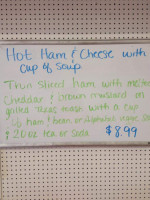 Hot Ham & Cheese with
Cup of Soup
Thin sliced ham with melted
Cheddar & brown mustard on
grilled Texas toast with a cup
of ham & bean or
& 20oz tea or soda $8.99